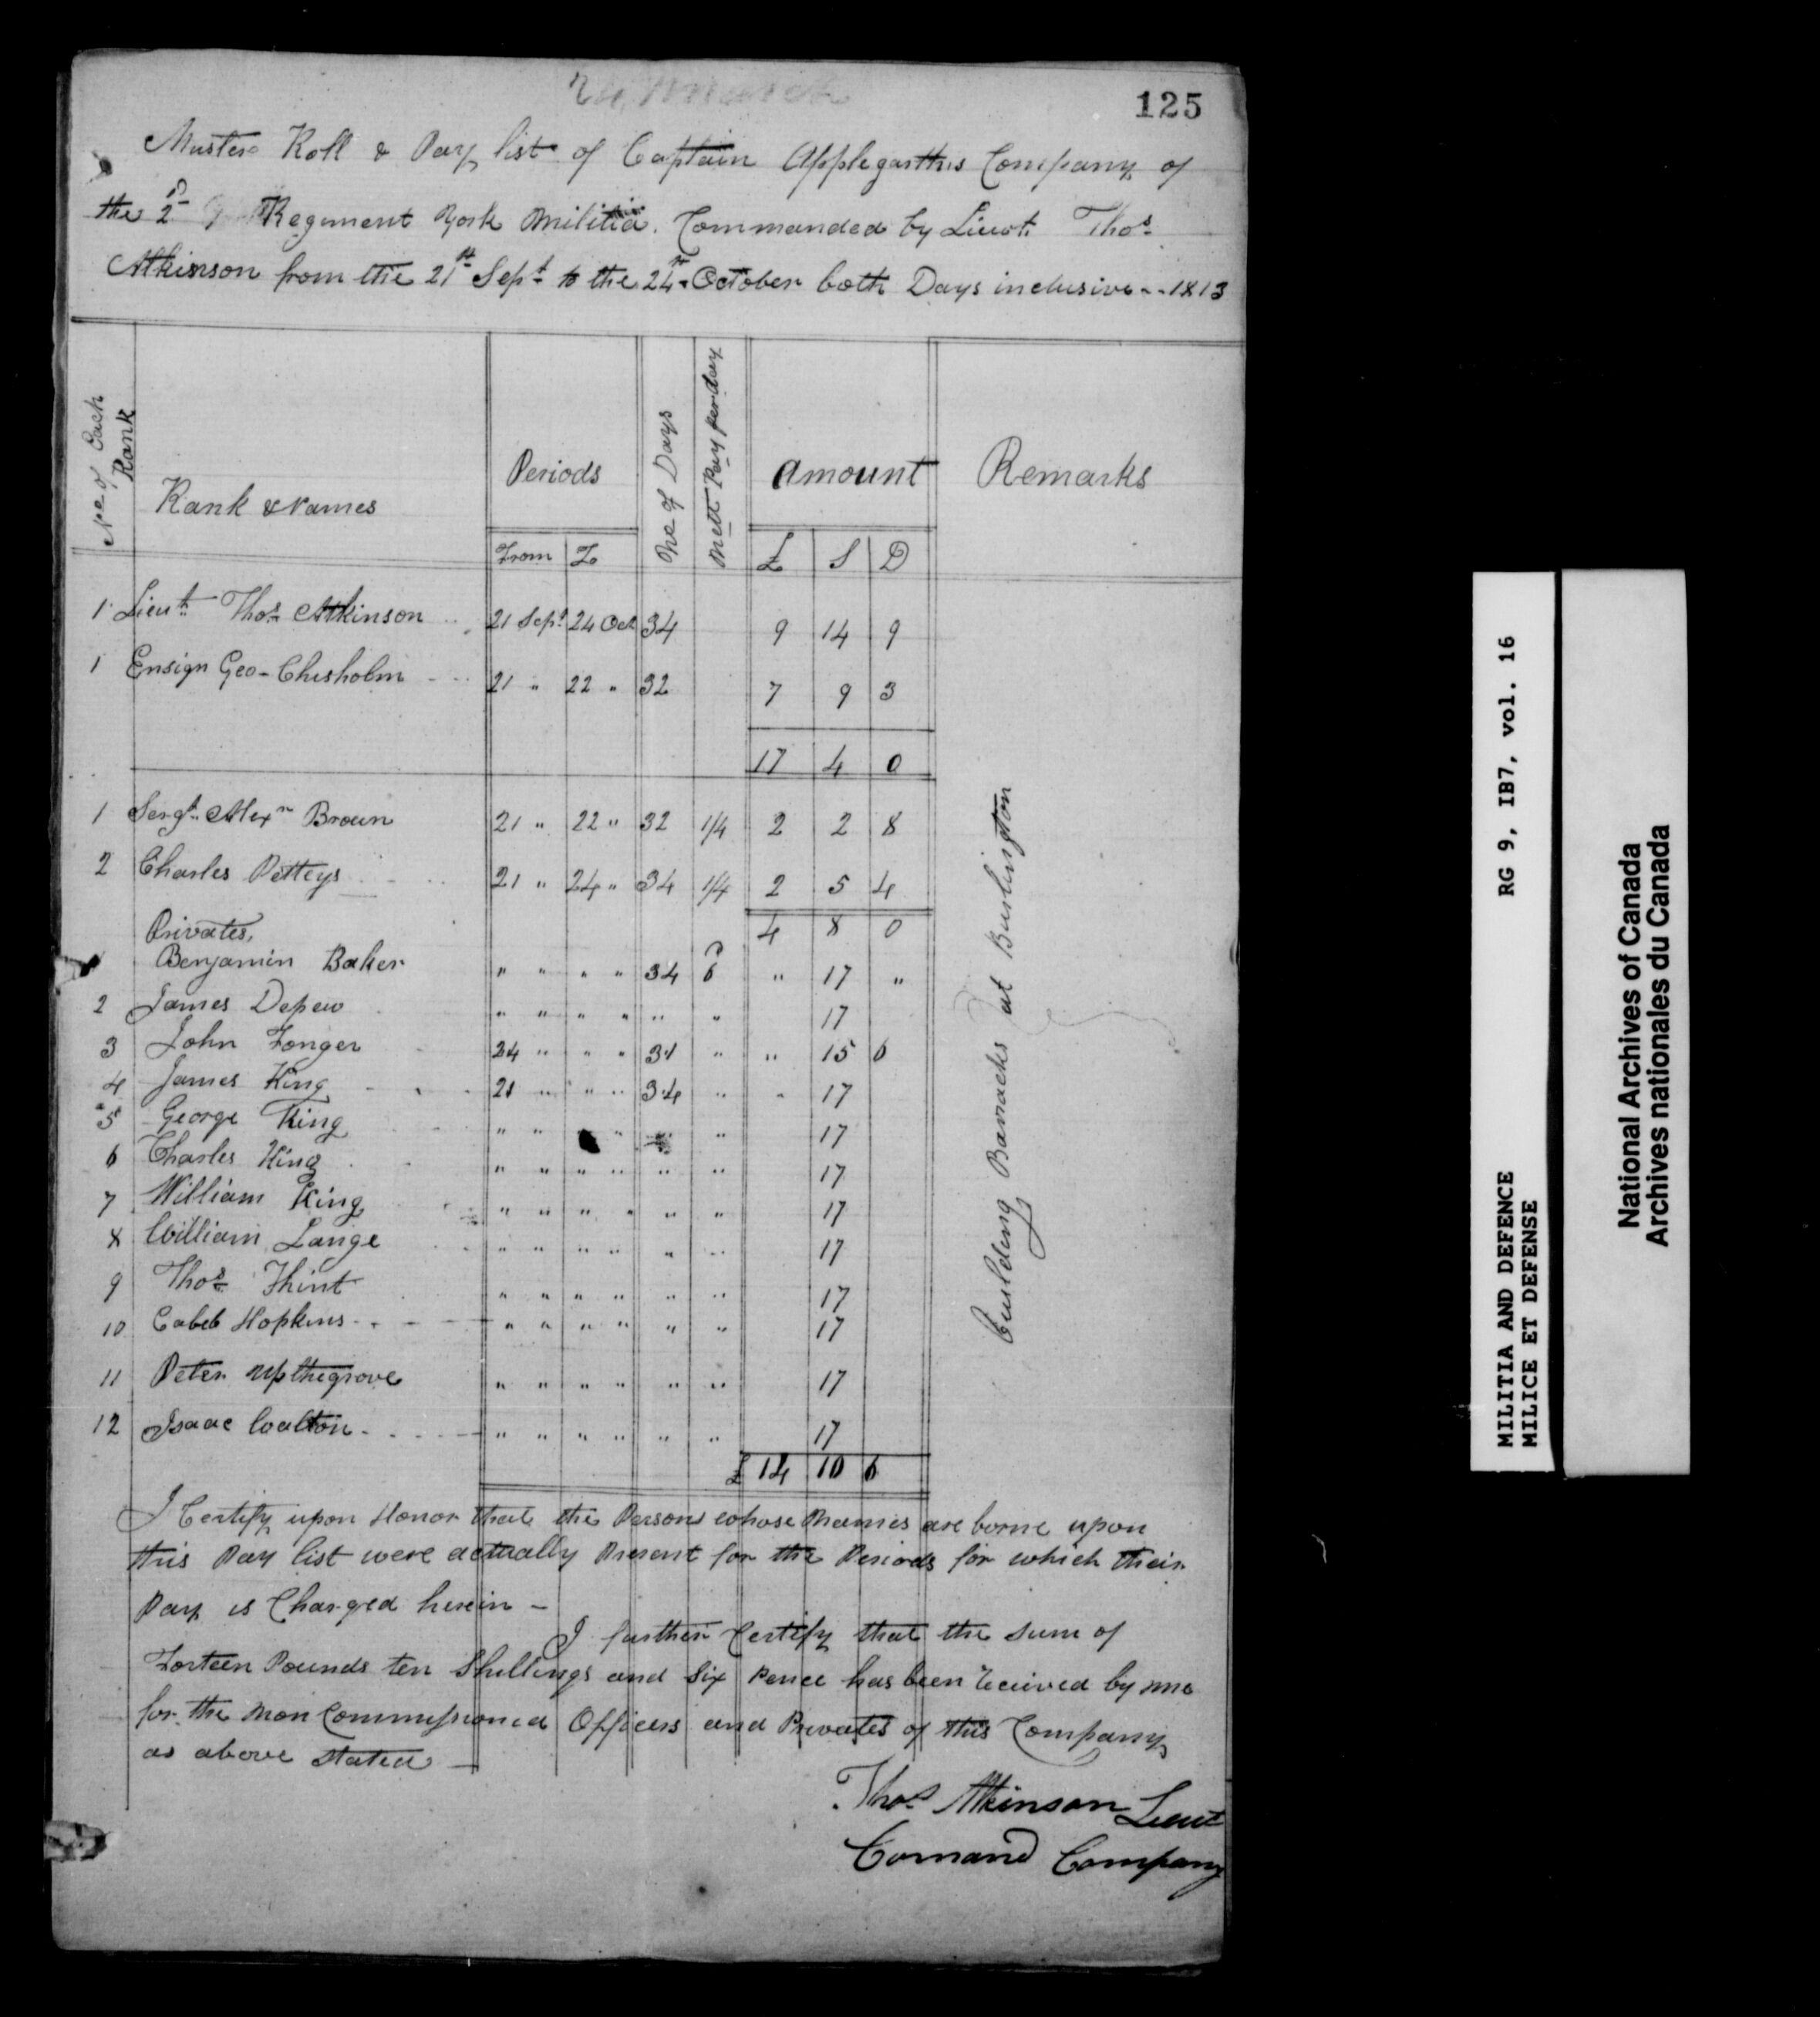 125
Muster Roll & Pay list of Captain Applegarths Company of
the 2d Regiment York Militia. Commanded by Lieut. Thos
Atkinson from the 21st Sept to the 24th October both Days inclusive - - 1813
No of Each Rank
Rank & Names
Periods
No of Days
Nett Pay per day
Amount
Remarks
From To £ S D
1 Lieut Thos Atkinson 21 Sept 24 Oct 34 9 14 9
1 Ensign Geo- Chisholm 21 " 22 " 32 7 9 3
17 4 0
1 Sergt Alexr Broun 21 " 22 " 32 1/4 2 2 8
2 Charles Petteys 21 " 24 " 34 1/4 2 5 4
4 8 0
Privates,
Benjamin Baker " " " " 34 6 " 17 "
2 James Depew " " " " " " 17
3 John Fonger 24 " " " 31 " " 15 6
4 James King 21 " " " 34 " " 17
5 George King " " " " " 17
6 Charles King " " " " " " 17
7 William King " " " " " " 17
8 William Lange " " " " " " 17
9 Thos Flint " " " " " " 17
10 Cabeb Hopkins " " " " " " 17
11 Peter Upthegrove " " " " " " 17
12 Isaac Coalton " " " " " " 17
£ 14 10 6
building Barracks at Burlington
I Certify upon Honor that the Persons whose Names are borne upon
this Pay list were actually Present for the Periods for which their
Pay is Charged herein -
I further Certify that the sum of
Forteen Pounds ten Shillings and Six Pence has been received by me
for the Non Commissioned Officers and Privates of this Company
as above Stated
Thos Atkinson Lieut
Comand Company
MILITIA AND DEFENCE RG 9, IB7, vol. 16
MILICE ET DEFENSE
National Archives of Canada
Archives nationales du Canada